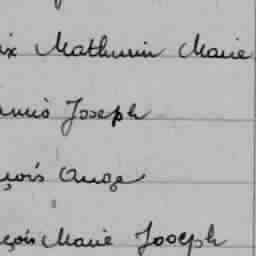 ix Mathurin Marie
Joseph
çois Ange
çois Marie Joseph